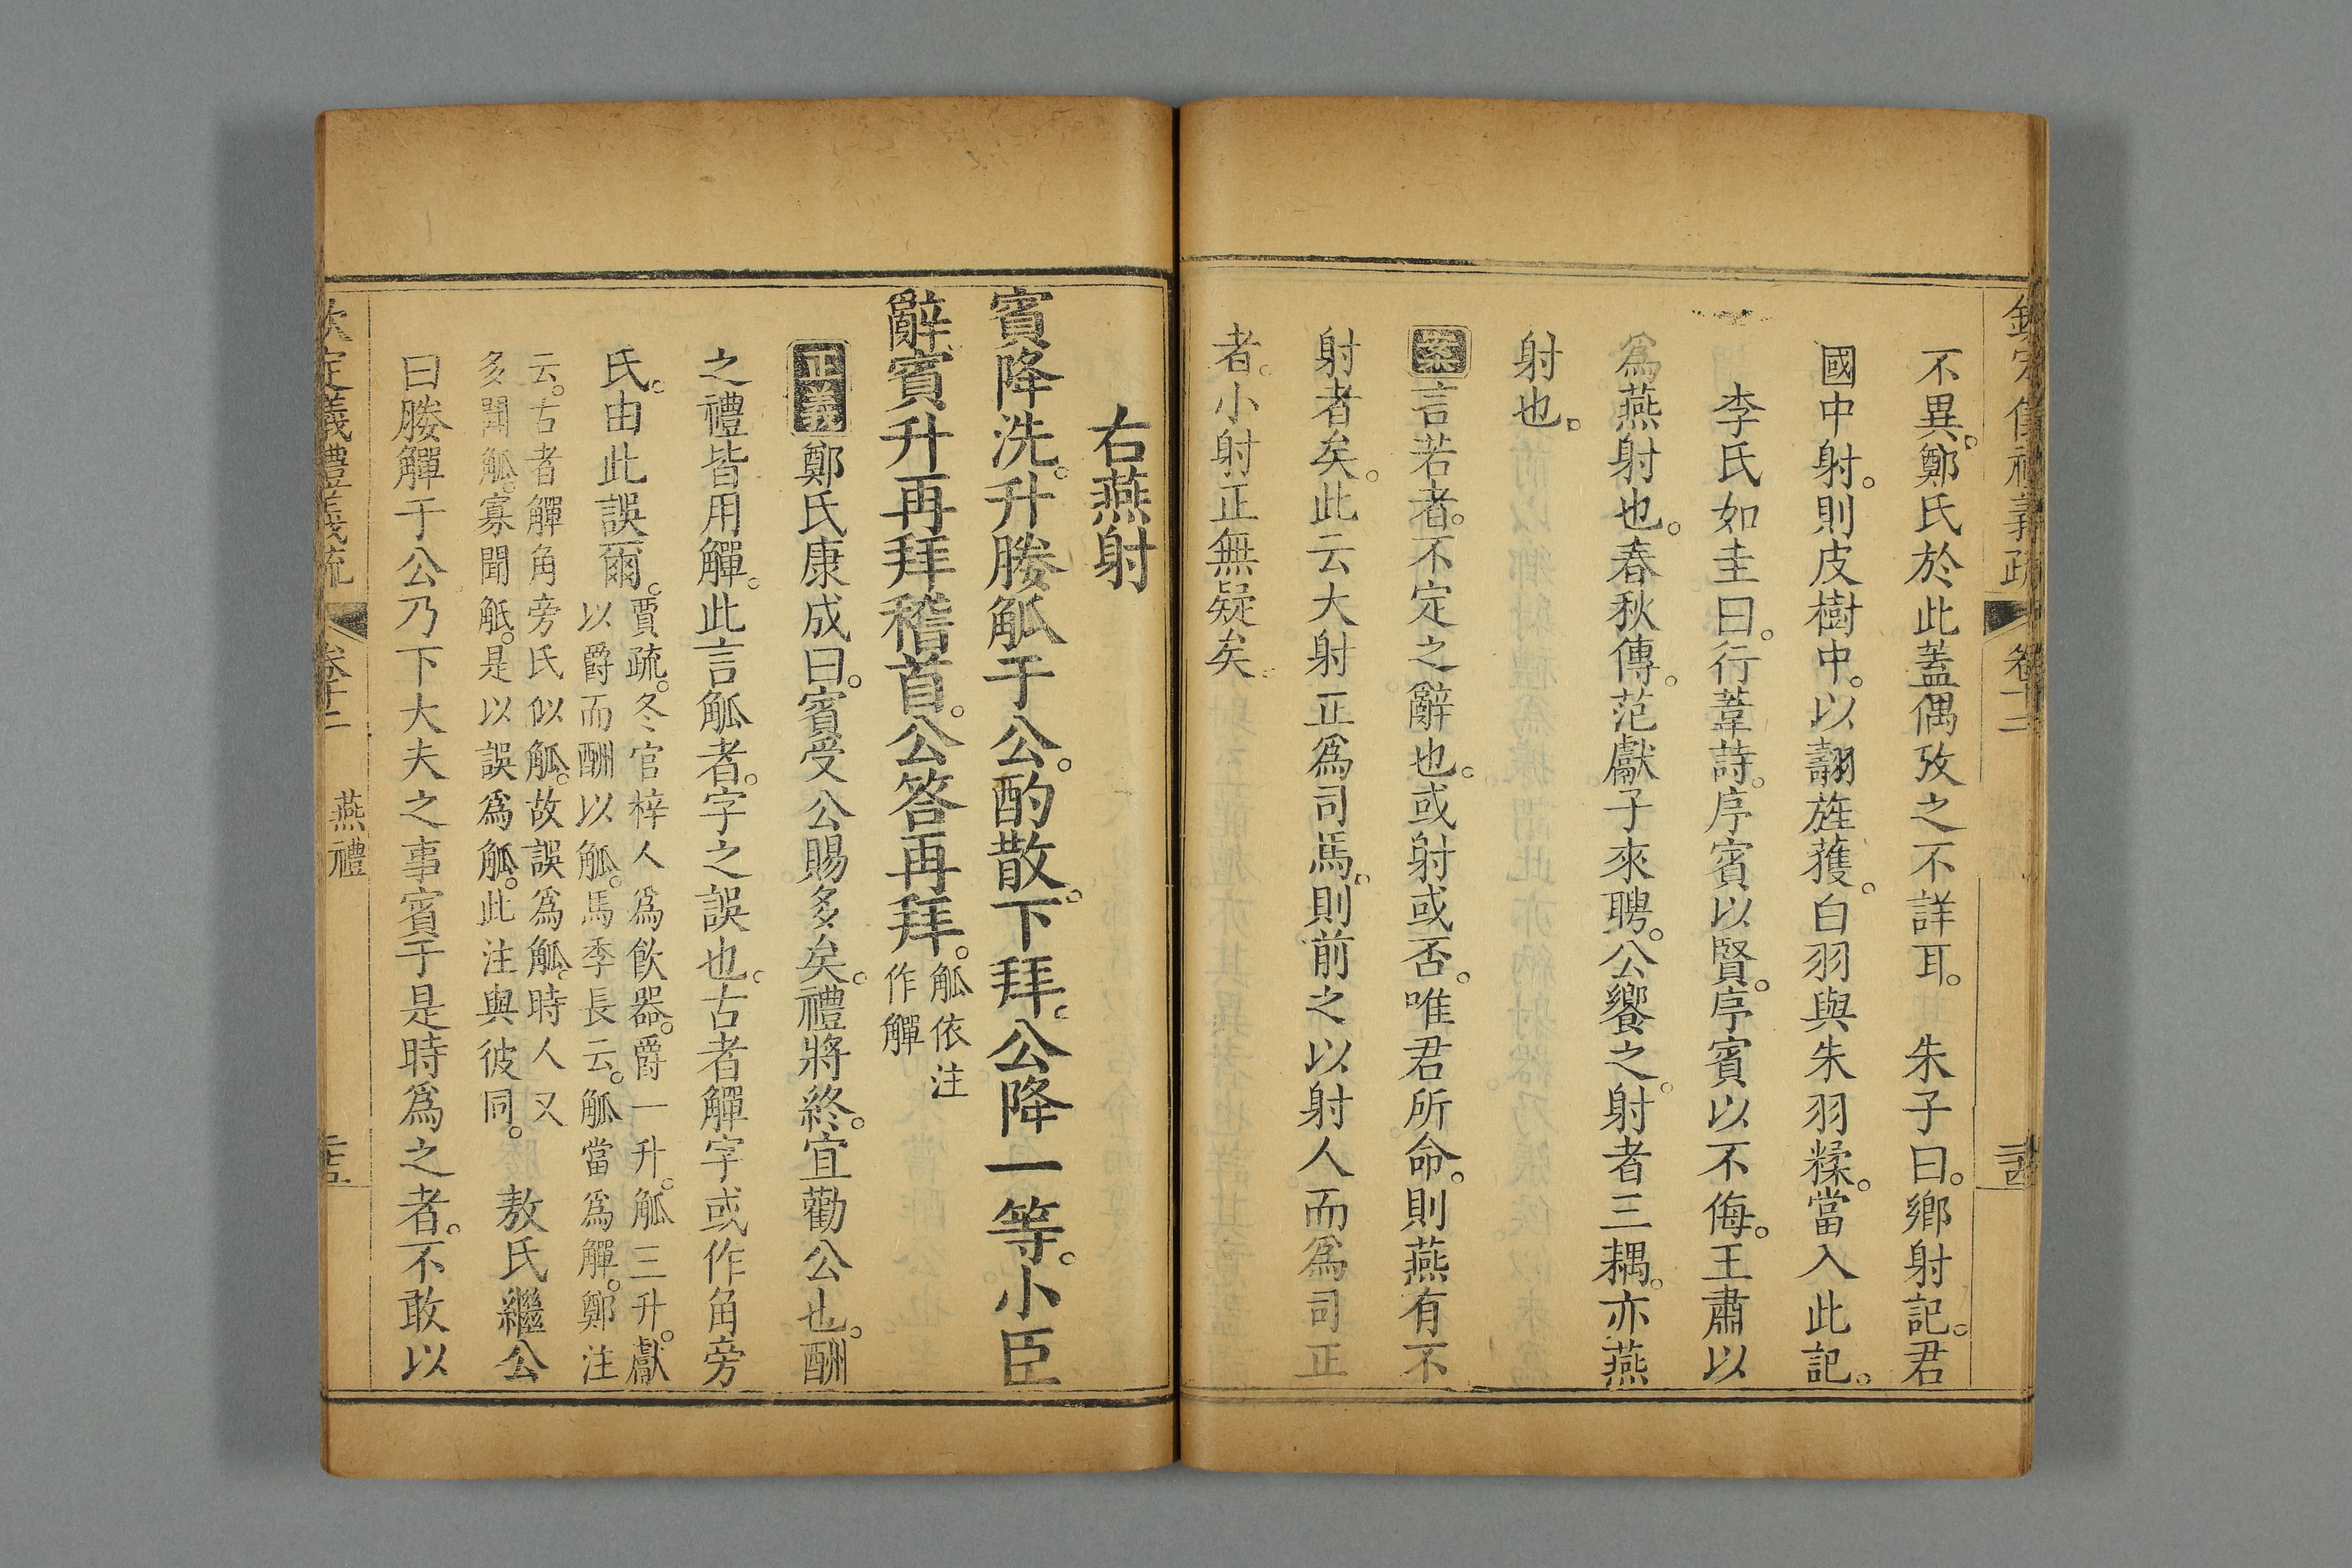 欽定儀禮義疏 卷十二 二十四
不異。鄭氏於此蓋偶攷之不詳耳。 朱子曰。鄉射記。君
國中射。則皮樹中。以翿旌獲。白羽與朱羽糅。當入此記。
李氏如圭曰。行葦詩。序賓以賢。序賓以不侮。王肅以
爲燕射也。春秋傳。范獻子來聘。公饗之。射者三耦。亦燕
射也。
案言若者。不定之辭也。或射或否。唯君所命。則燕有不
射者矣。此云大射正爲司馬。則前之以射人而爲司正
者。小射正無疑矣。
右燕射
賓降洗。升媵觚于公。酌散。下拜。公降一等。小臣
辭。賓升再拜稽首。公答再拜。觚依注
作觶
正義鄭氏康成曰。賓受公賜多矣。禮將終。宜勸公也。酬
之禮皆用觶。此言觚者。字之誤也。古者觶字或作角旁
氏。由此誤爾。賈疏。冬官梓人爲飲器。爵一升。觚三升。獻
以爵而酬以觚。馬季長云。觚當爲觶。鄭注
云。古者觶角旁氏似觚。故誤爲觚。時人又
多聞觚。寡聞觗。是以誤爲觚。此注與彼同。 敖氏繼公
曰媵觶于公乃下大夫之事賓于是時爲之者。不敢以
欽定儀禮義疏 卷十二 燕禮 二十五